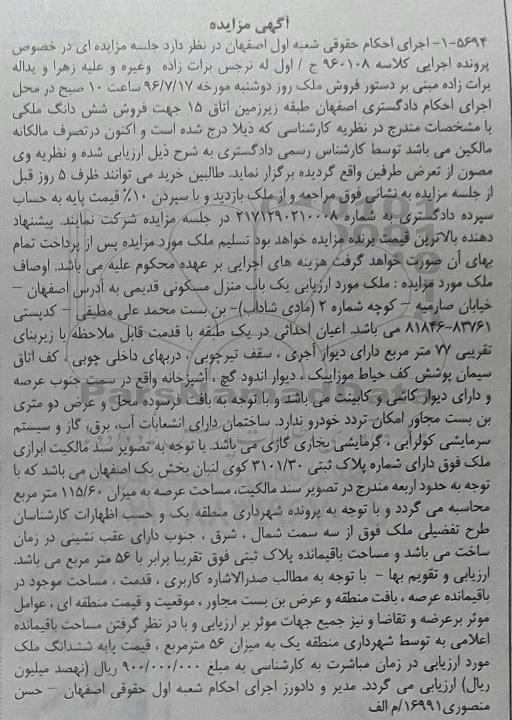 آگهی مزایده
۱-۵۶۹۴- اجرای احکام حقوقی شعبه اول اصفهان در نظر دارد جلسه مزایده ای در خصوص
پرونده اجرایی کلاسه ۹۶۰۱۰۸ ج / اول له نرجس برات زاده وغیره و علیه زهرا و یداله
برات زاده مبنی بر دستور فروش ملک روز دوشنبه مورخه ۹۶/۷/۱۷ ساعت ۱۰ صبح در محل
اجرای احکام دادگستری اصفهان طبقه زیرزمین اتاق ۱۵ جهت فروش شش دانگ ملکی
با مشخصات مندرج در نظریه کارشناسی که ذیلا درج شده است و اکنون درتصرف مالکانه
مالکین می باشد توسط کارشناس رسمی دادگستری به شرح ذیل ارزیابی شده و نظریه وی
مصون از تعرض طرفین واقع گردیده برگزار نماید. طالبین خرید می توانند ظرف ۵ روز قبل
از جلسه مزایده به نشانی فوق مراجعه و از ملک بازدید و با سپردن ۱۰٪ قیمت پایه به حساب
سپرده دادگستری به شماره ۲۱۷۱۲۹۰۲۱۰۰۰۸ در جلسه مزایده شرکت نمایند. پیشنهاد
دهنده بالاترین قیمت برنده مزایده خواهد بود تسلیم ملک مورد مزایده پس از پرداخت تمام
بهای آن صورت خواهد گرفت هزینه های اجرایی بر عهده محکوم علیه می باشد. اوصاف
ملک مورد مزایده : ملک مورد ارزیابی یک باب منزل مسکونی قدیمی به آدرس اصفهان –
خیابان صارمیه – کوچه شماره ۲ (مادی شاداب)- بن بست محمد علی مطیفی – کدپستی
۸۱۸۴۶-۸۳۷۶۱ می باشد. اعیان احداثی در یک طبقه با قدمت قابل ملاحظه با زیربنای
تقریبی ۷۷ متر مربع دارای دیوار آجری ، سقف تیرچوبی ، دربهای داخلی چوبی ، کف اتاق
سیمان پوشش کف حیاط موزاییک ، دیوار اندود گچ ، آشپزخانه واقع در سمت جنوب عرصه
و دارای دیوار کاشی و کابینت می باشد و با توجه به بافت فرسوده محل و عرض دو متری
بن بست مجاور امکان تردد خودرو ندارد. ساختمان دارای انشعابات آب، برق، گاز و سیستم
سرمایشی کولرآبی ، گرمایشی بخاری گازی می باشد. با توجه به تصویر سند مالکیت ابرازی
ملک فوق دارای شماره پلاک ثبتی ۳۱۰۱/۳۰ کوی لنبان بخش یک اصفهان می باشد که با
توجه به حدود اربعه مندرج در تصویر سند مالکیت، مساحت عرصه به میزان ۱۱۵/۶۰ متر مربع
محاسبه می گردد و با توجه به پرونده شهرداری منطقه یک و حسب اظهارات کارشناسان
طرح تفضیلی ملک فوق از سه سمت شمال ، شرق ، جنوب دارای عقب نشینی در زمان
ساخت می باشد و مساحت باقیمانده پلاک ثبتی فوق تقریبا برابر با ۵۶ متر مربع می باشد.
ارزیابی و تقویم بها – با توجه به مطالب صدرالاشاره کاربری ، قدمت ، مساحت موجود در
باقیمانده عرصه ، بافت منطقه و عرض بن بست مجاور ، موقعیت و قیمت منطقه ای ، عوامل
موثر برعرضه و تقاضا و نیز جمیع جهات موثر بر ارزیابی و با در نظر گرفتن مساحت باقیمانده
اعلامی به توسط شهرداری منطقه یک به میزان ۵۶ مترمربع ، قیمت پایه ششدانگ ملک
مورد ارزیابی در زمان مباشرت به کارشناسی به مبلغ ۹۰۰/۰۰۰/۰۰۰ ریال (نهصد میلیون
ریال) ارزیابی می گردد. مدیر و دادورز اجرای احکام شعبه اول حقوقی اصفهان – حسن
منصوری۱۶۹۹۱/م الف